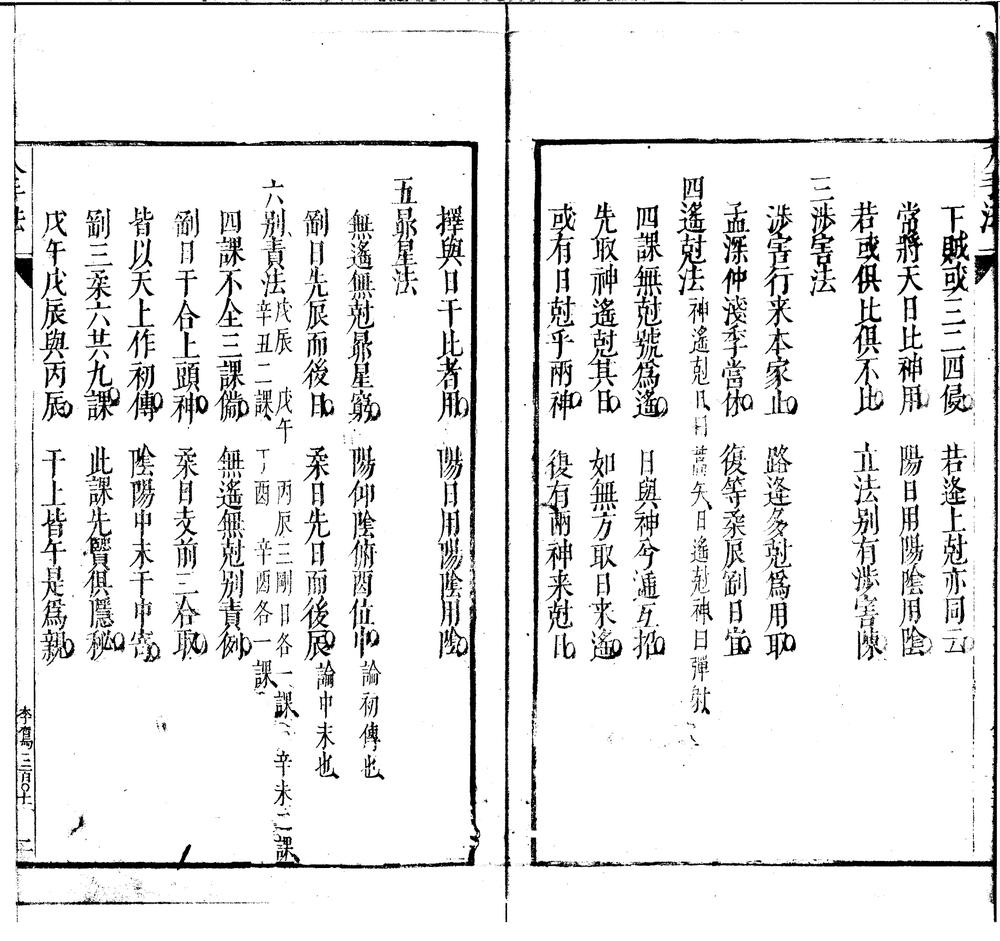 下賊或三二四侵　若逢上尅亦同云
常將天日比神用　陽日用陽陰用陰
若或俱比俱不比　立法別有涉害陳
三涉害法
涉害行来本家止　路逢多尅為用取
孟深仲淺季當休　復等柔辰剛日宜
四遙尅法 神遙尅日曰蒿矢日遙尅神曰彈射
四課無尅號為遙　日與神兮遞互招
先取神遙尅其日　如無方取日来遙
或有日尅乎兩神　復有兩神来尅日
擇與日干比者用　陽日用陽陰用陰
五昴星法
無遙無尅昴星窮　陽仰陰俯酉位中 論初傳也
剛日先辰而後日　柔日先日而後辰 論中末也
六別責法 戊辰　戊午　丙辰三剛日各一課　辛未二課
辛丑二課　丁酉　辛酉各一課
四課不全三課備　無遙無尅別責例
剛日干合上頭神　柔日支前三合取
皆以天上作初傳　陰陽中末干中寄
剛三柔六共九課　此課先賢俱隱秘
戊午戊辰與丙辰　干上皆午是為親
二